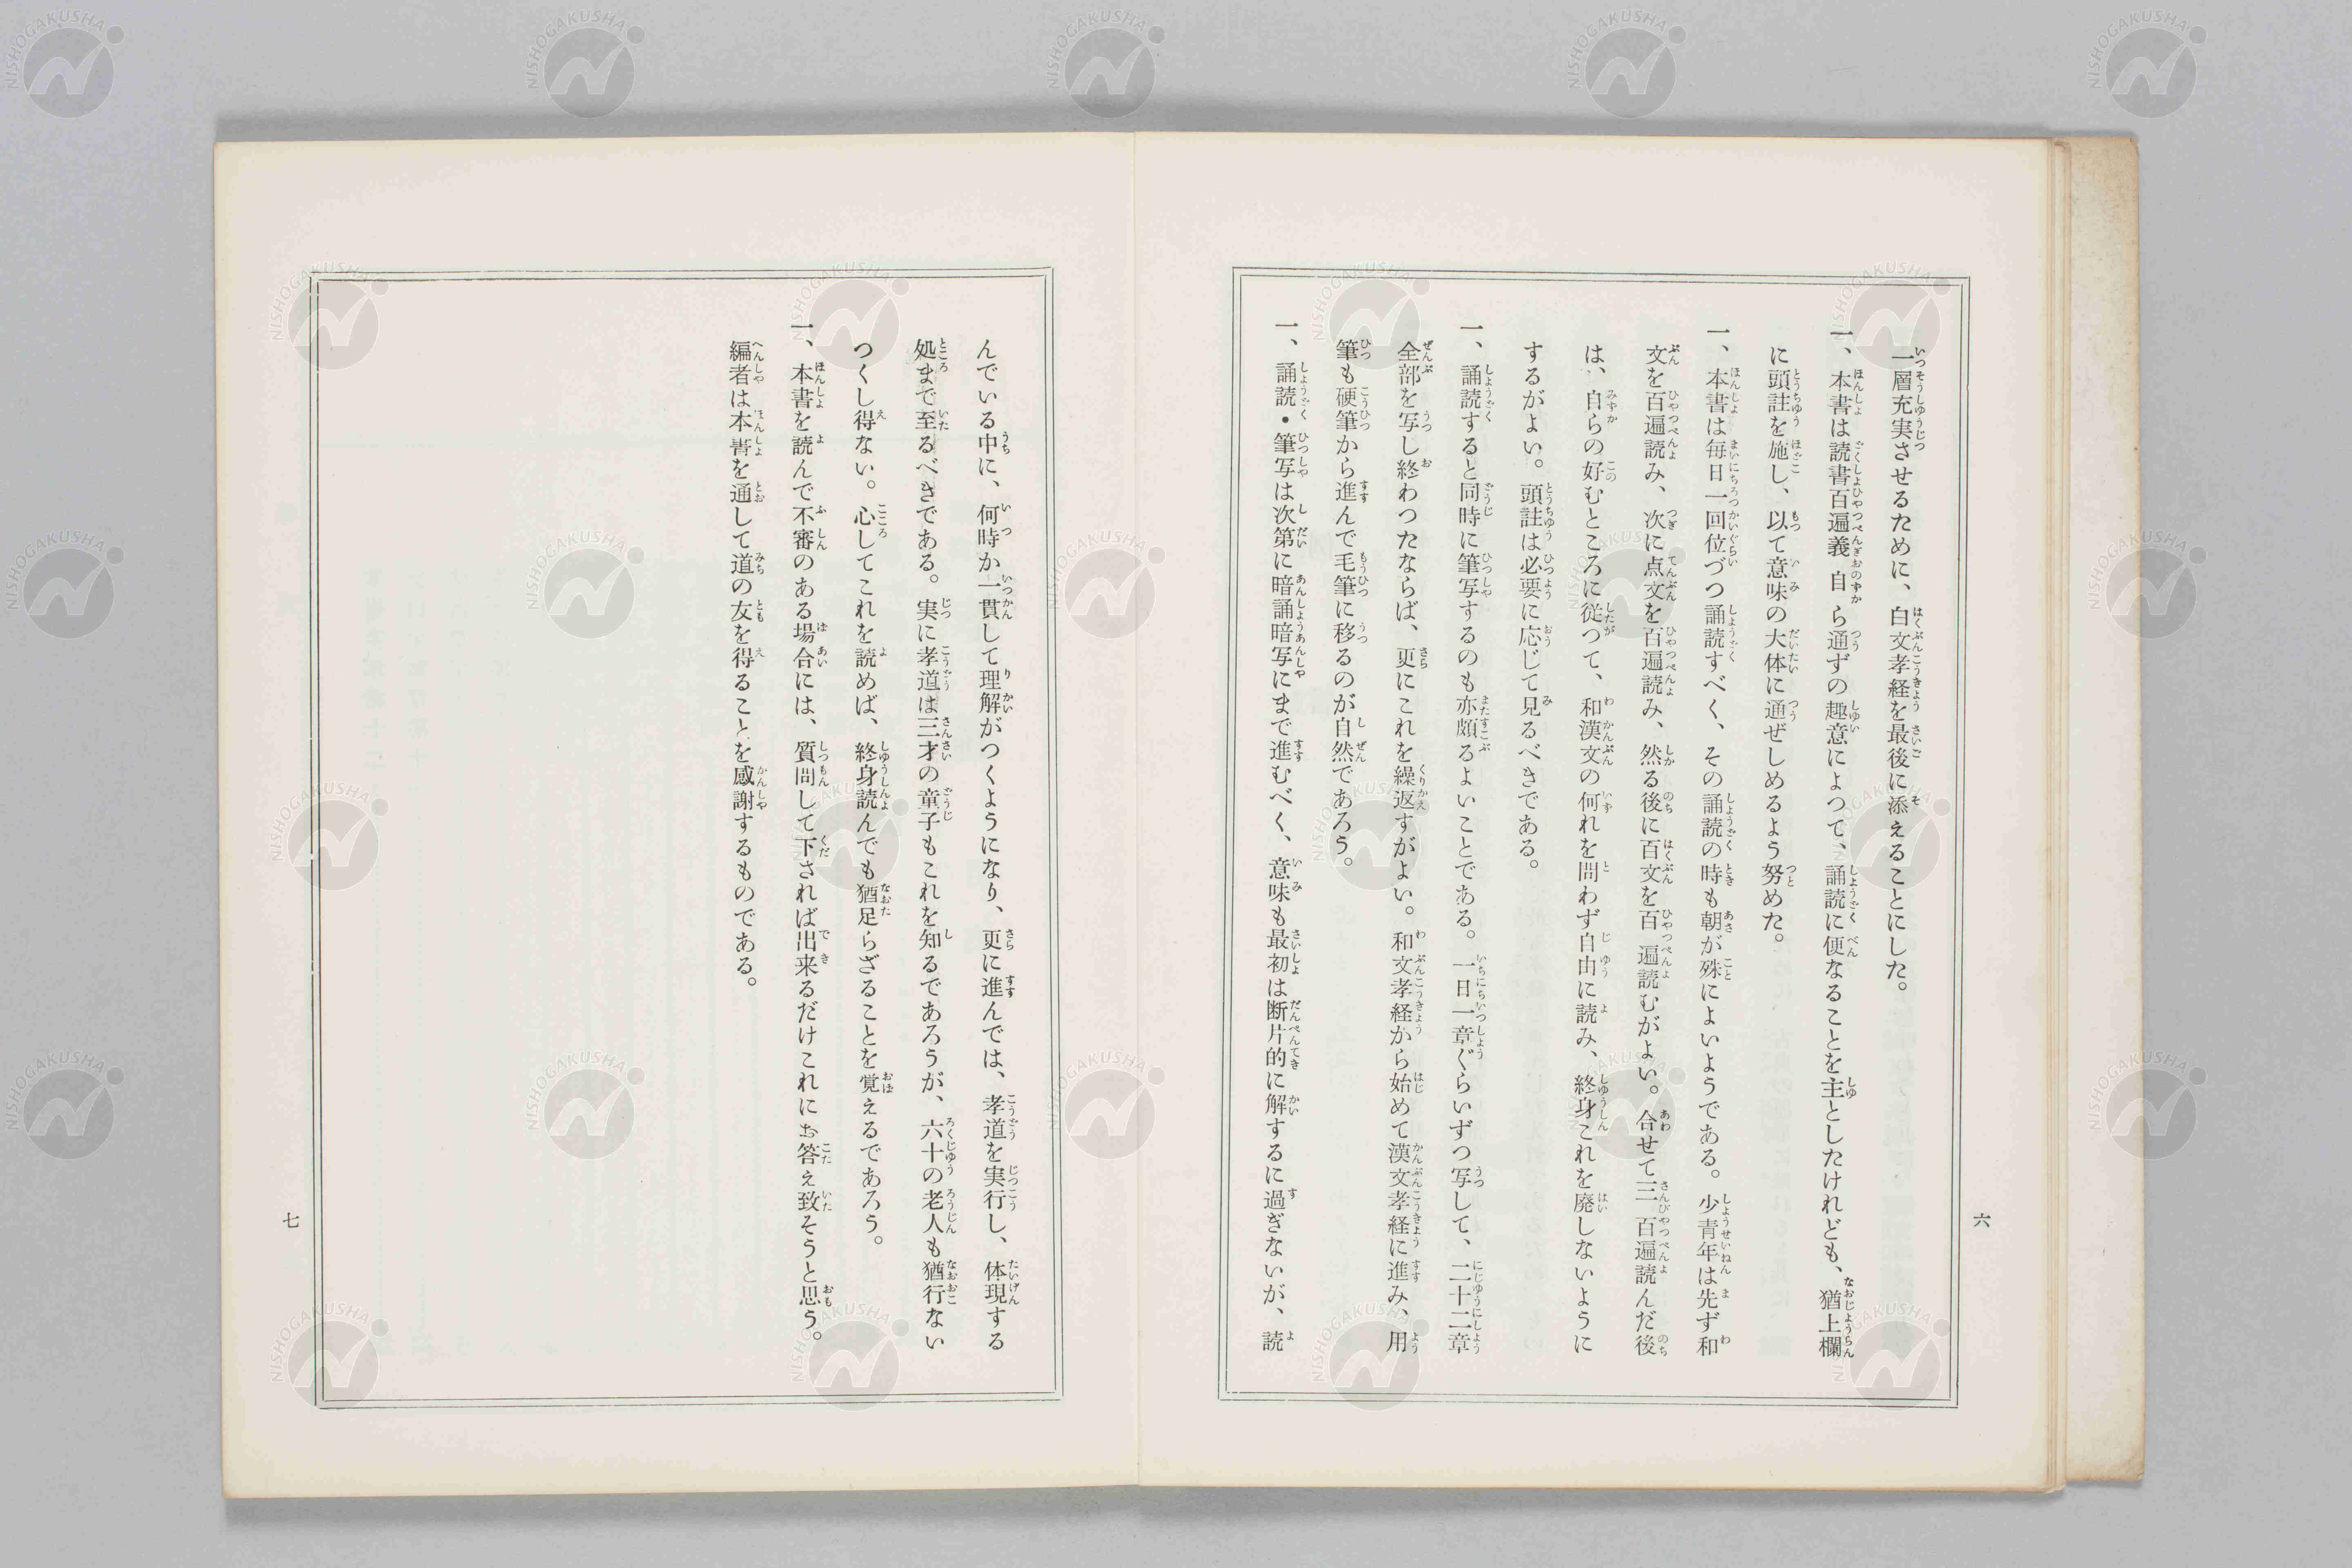 一層充実させるために、白文孝経を最後に添えることにした。
一、本書は読書百遍義自ら通ずの趣意によつて、誦読に便なることを主としたけれども、猶上欄
に頭註を施し、以て意味の大体に通ぜしめるよう努めた。
一、本書は毎日一回位づつ誦読すべく、その誦読の時も朝が殊によいようである。少青年は先ず和
文を百遍読み、次に点文を百遍読み、然る後に百文を百遍読むがよい。合せて三百遍読んだ後
は、自らの好むところに従つて、和漢文の何れを問わず自由に読み、終身これを廃しないように
するがよい。頭註は必要に応じて見るべきである。
一、誦読すると同時に筆写するのも亦頗るよいことである。一日一章ぐらいずつ写して、二十二章
全部を写し終わつたならば、更にこれを繰返すがよい。和文孝経から始めて漢文孝経に進み、用
筆も硬筆から進んで毛筆に移るのが自然であろう。
一、誦読・筆写は次第に暗誦暗写にまで進むべく、意味も最初は断片的に解するに過ぎないが、読
六
んでいる中に、何時か一貫して理解がつくようになり、更に進んでは、孝道を実行し、体現する
処まで至るべきである。実に孝道は三才の童子もこれを知るであろうが、六十の老人も猶行ない
つくし得ない。心してこれを読めば、終身読んでも猶足らざることを覚えるであろう。
一、本書を読んで不審のある場合には、質問して下されば出来るだけこれにお答え致そうと思う。
編者は本書を通して道の友を得ることを感謝するものである。
七
NISHOGAKUSHA